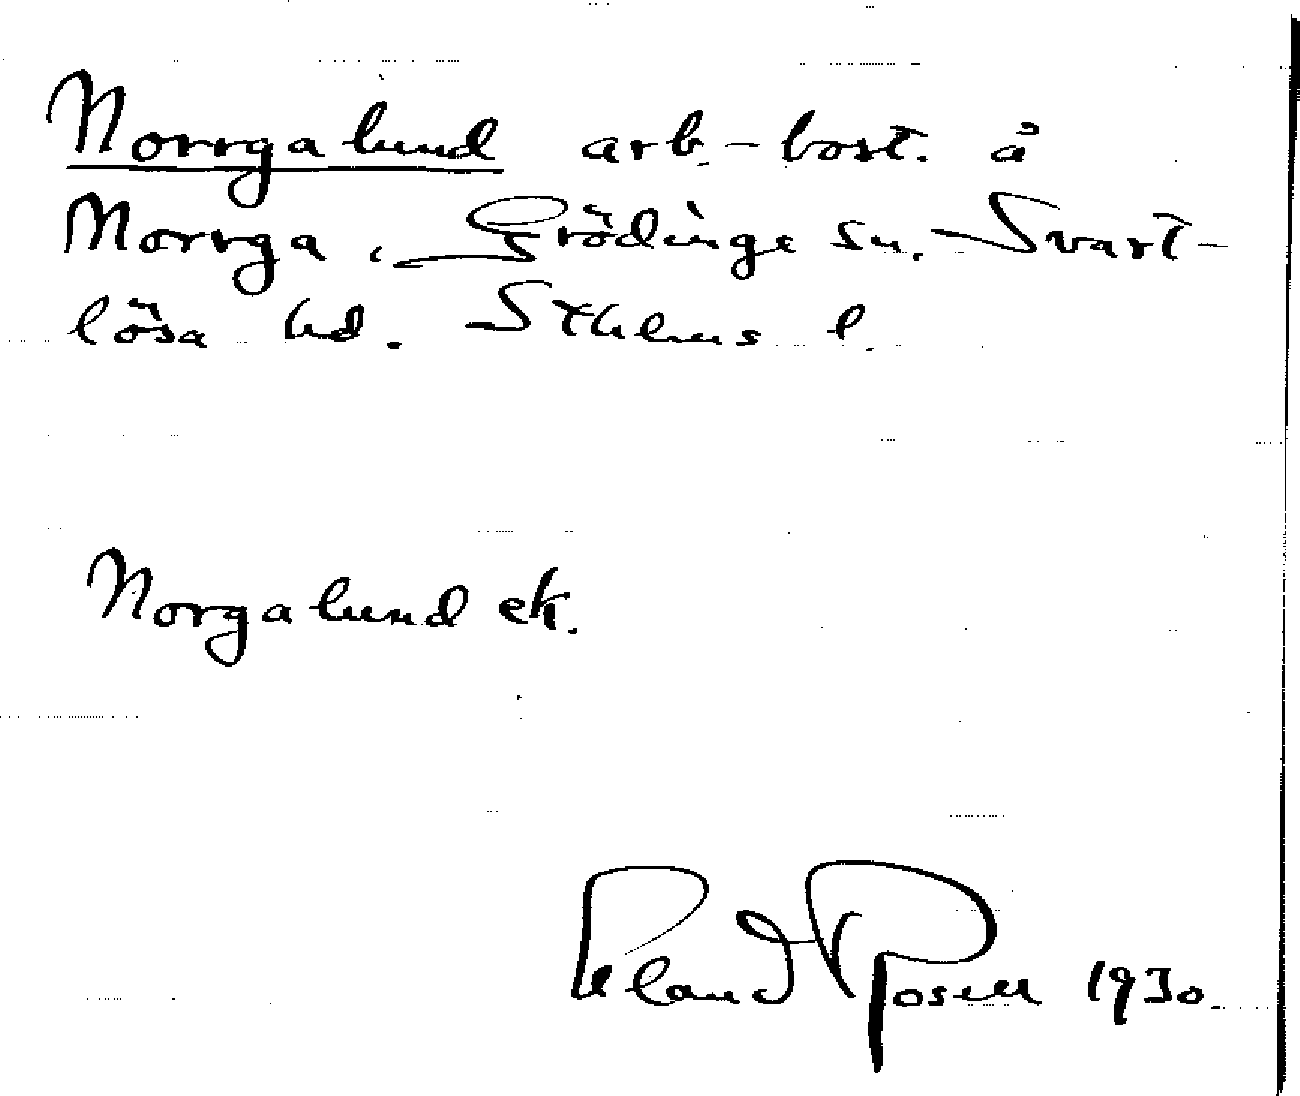 Norrgalund arb.-bost. å
Norrga, Grödinge sn. Svart-
lösa hd. Sthlms l.
Norgalund ek.
Erland Rosell 1930